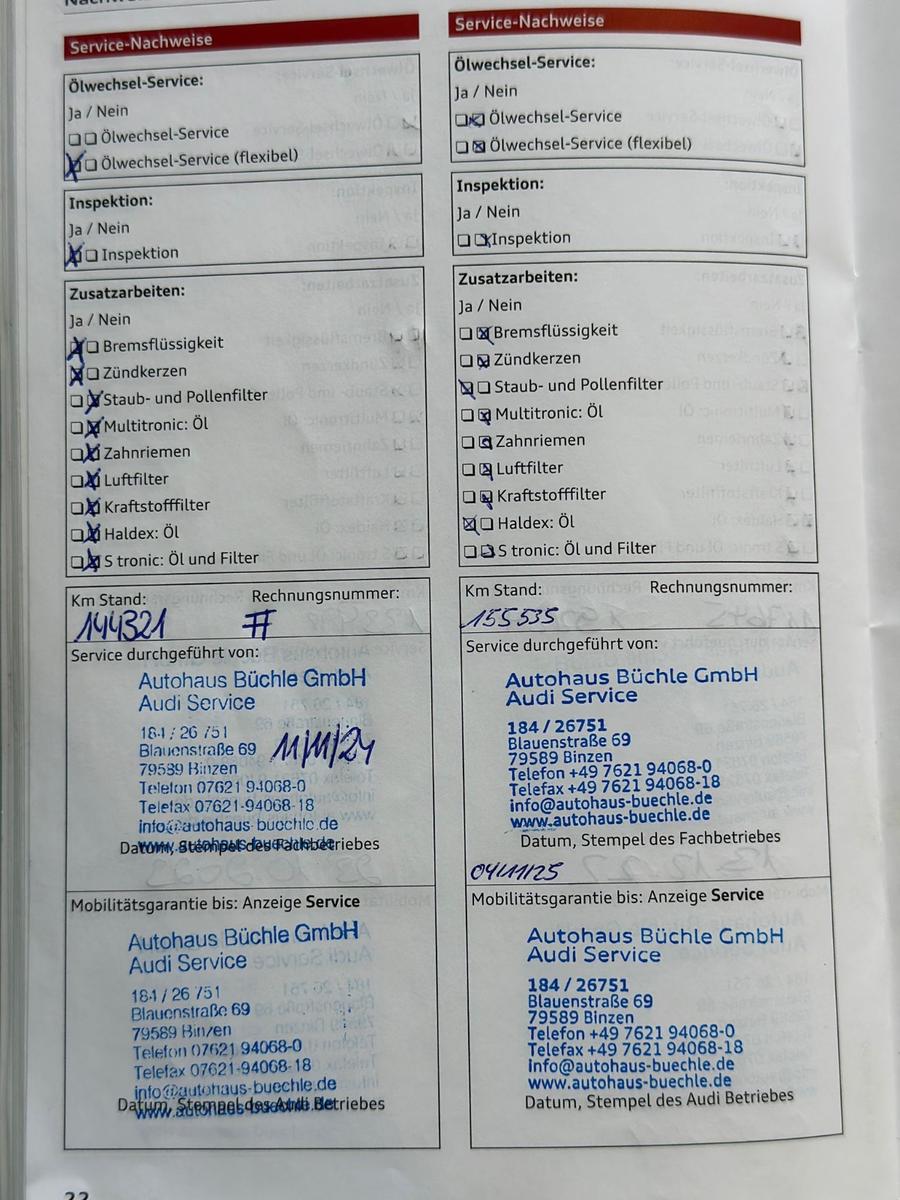 Service-Nachweise
Ölwechsel-Service:
Ja / Nein
Ölwechsel-Service
Ölwechsel-Service (flexibel)
Inspektion:
Ja / Nein
Inspektion
Zusatzarbeiten:
Ja / Nein
Bremsflüssigkeit
Zündkerzen
Staub- und Pollenfilter
Multitronic: Öl
Zahnriemen
Luftfilter
Kraftstofffilter
Haldex: Öl
S tronic: Öl und Filter
Km Stand: Rechnungsnummer:
144321 #
Service durchgeführt von:
Autohaus Büchle GmbH
Audi Service
184 / 26 751
Blauenstraße 69 11/11/24
79589 Binzen
Telefon 07621 94068-0
Telefax 07621-94068-18
info@autohaus-buechle.de
www.autohaus-buechle.de
Datum, Stempel des Fachbetriebes
Mobilitätsgarantie bis: Anzeige Service
Autohaus Büchle GmbH
Audi Service
184 / 26 751
Blauenstraße 69
79589 Binzen
Telefon 07621 94068-0
Telefax 07621-94068-18
info@autohaus-buechle.de
www.autohaus-buechle.de
Datum, Stempel des Audi Betriebes
22
Service-Nachweise
Ölwechsel-Service:
Ja / Nein
Ölwechsel-Service
Ölwechsel-Service (flexibel)
Inspektion:
Ja / Nein
Inspektion
Zusatzarbeiten:
Ja / Nein
Bremsflüssigkeit
Zündkerzen
Staub- und Pollenfilter
Multitronic: Öl
Zahnriemen
Luftfilter
Kraftstofffilter
Haldex: Öl
S tronic: Öl und Filter
Km Stand: Rechnungsnummer:
155535
Service durchgeführt von:
Autohaus Büchle GmbH
Audi Service
184 / 26751
Blauenstraße 69
79589 Binzen
Telefon +49 7621 94068-0
Telefax +49 7621 94068-18
info@autohaus-buechle.de
www.autohaus-buechle.de
Datum, Stempel des Fachbetriebes
04/11/25
Mobilitätsgarantie bis: Anzeige Service
Autohaus Büchle GmbH
Audi Service
184 / 26751
Blauenstraße 69
79589 Binzen
Telefon +49 7621 94068-0
Telefax +49 7621 94068-18
info@autohaus-buechle.de
www.autohaus-buechle.de
Datum, Stempel des Audi Betriebes